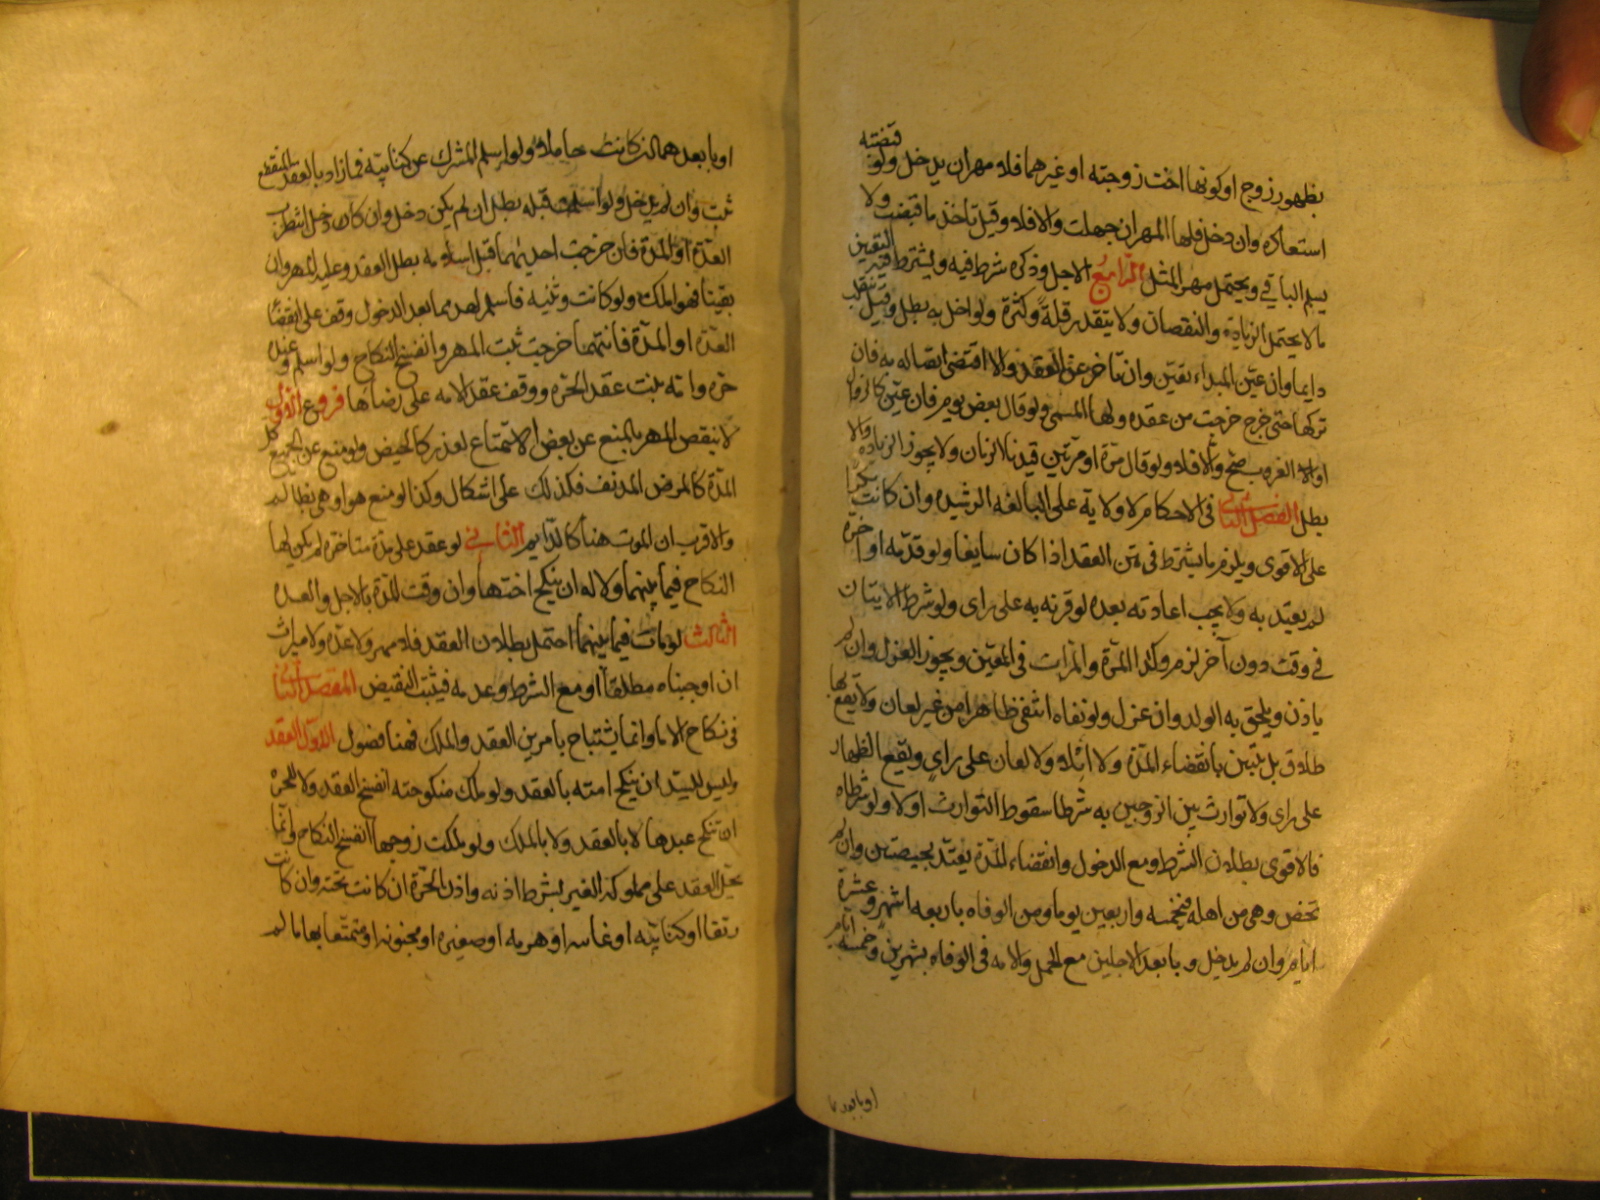 بظهور زوج او كونها اخت زوجته او غيرهما فلا مهر ان لم يدخل ولو قبضته
استعاده وان دخل فلها المهر ان جهلت والا فلا وقيل تاخذ ما قبضت ولا
يسلم الباقي ويحتمل مهر المثل الرابع الاجل وذكره شرط فيه ويشترط فيه التعيين
بما لا يحتمل الزيادة والنقصان ولا يتقدر قلة وكثرة ولو اخل به بطل وقيل ينقلب
دايما وان عين المبداء تعين وان تاخر عن العقد والا اقتضى اتصاله به فان
تركها حتى خرج خرجت من عقده ولها المسمى ولو قال بعض يوم فان عين كالزوال
او الى الغروب صح والا فلا ولو قال مرة او مرتين قيدنا الزمان ولا يجوز الزيادة والا
بطل الفصل الثاني في الاحكام لا ولاية على البالغه الرشيده وان كانت بكرا
على الاقوى ويلزم ما يشترط في متن العقد اذا كان سايغا ولو قدمه او اخره
لم يعتد به ولا يجب اعادته بعده لو قرنه به على راى ولو شرط الاتيان
في وقت دون آخر لزم وكذا المرة والمرات في المعين ويجوز العزل وان لم
ياذن ويلحق به الولد وان عزل ولو نفاه انتفى ظاهرا من غير لعان ولا يقع بها
طلاق بل تبين بانقضاء المدة ولا ايلاء ولا لعان على راي ويقع الظهار
على راى ولا توارث بين الزوجين به شرطا سقوط التوارث اولا ولو شرطاه
فالاقوى بطلان الشرط ومع الدخول وانقضاء المدة يعتد بحيضتين وان لم
تحض وهي من اهله فبخمسه واربعين يوما ومن الوفاه باربعه اشهر وعشرة
ايام وان لم يدخل وبابعد الاجلين مع الحمل والامه في الوفاه بشهرين وخمسه ايام
او بابعدهما
او بابعدهما ان كانت حاملا ولو اسلم المشرك عن كتابية فما زاد بالعقد المنقطع
ثبت وان لم يدخل ولو اسلمت قبله بطل ان لم يكن دخل وان كان دخل انتظرت
العدة او المدة فان خرجت احديهما قبل اسلامه بطل العقد وعليه المهر وان
بقيتا فهو املك ولو كانت وثنيه فاسلم احدهما بعد الدخول وقف على انقضاء
العدة او المدة فايتهما خرجت ثبت المهر وانفسخ النكاح ولو اسلم وعنده
حره وامه ثبت عقد الحره ووقف عقد الامه على رضاها فروع الاول
لا ينقص المهر بالمنع عن بعض الاستمتاع لعذر كالحيض ولو منع عن الجميع كل
المدة كالمرض المدنف فكذلك على اشكال وكذا لو منع هو او هي بظالم
والاقرب ان الموت هنا كالدايم الثاني لو عقد على مدة متاخرة لم يكن لها
النكاح فيما بينهما ولا له ان ينكح اختها وان وقت المدة بالاجل والعده
الثالث لو مات فيما بينهما احتمل بطلان العقد فلا مهر ولا عدة ولا ميراث
ان اوجبناه مطلقا او مع الشرط وعدمه فيثبت النقيض المقصد الثاني
في نكاح الاما وانما يستباح بامرين العقد والملك فهنا فصول الاول العقد
وليس للسيد ان ينكح امته بالعقد ولو ملك منكوحته انفسخ العقد ولا للحره
ان تنكح عبدها لا بالعقد ولا بالملك ولو ملكت زوجها انفسخ النكاح وانما
يحل العقد على مملوكه الغير بشرط اذنه واذن الحرة ان كانت تحته وان كانت
رتقا او كتابيه او غايبه او هرمه او صغيره او مجنونه او متمتعا بها ما لم